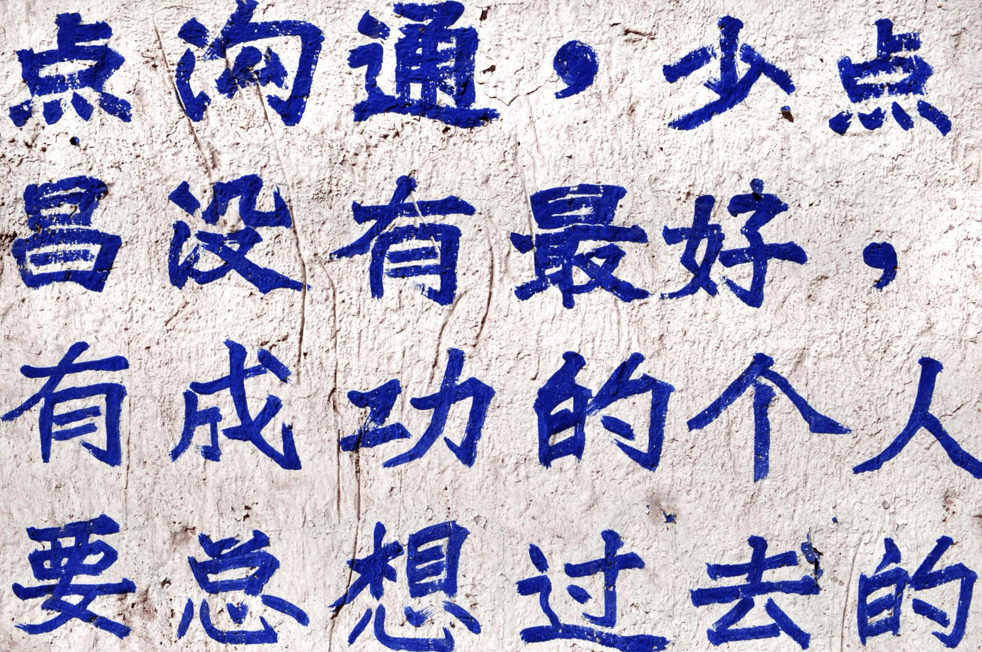 点沟通，少点
冒没有最好，
有成功的个人
要总想过去的